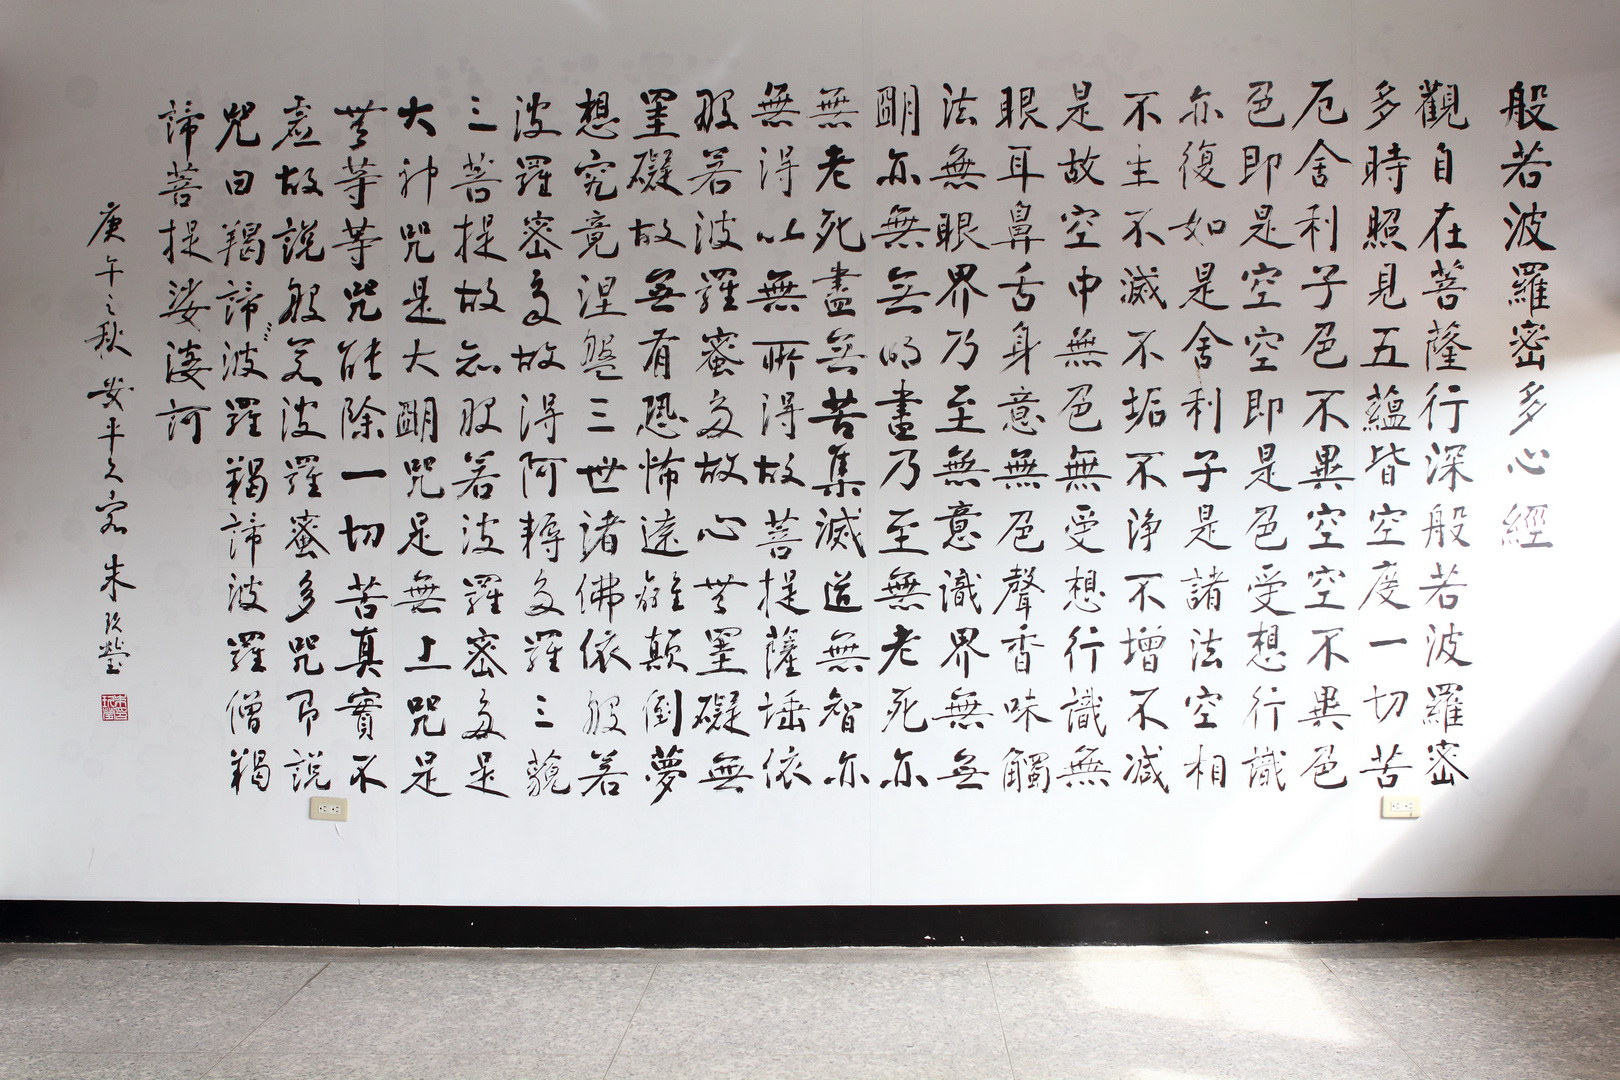 般若波羅密多心經
觀自在菩薩行深般若波羅密
多時照見五蘊皆空度一切苦
厄舍利子色不異空空不異色
色即是空空即是色受想行識
亦復如是舍利子是諸法空相
不生不滅不垢不淨不增不減
是故空中無色無受想行識無
眼耳鼻舌身意無色聲香味觸
法無眼界乃至無意識界無無
明亦無無明盡乃至無老死亦
無老死盡無苦集滅道無智亦
無得以無所得故菩提薩埵依
般若波羅蜜多故心無罣礙無
罣礙故無有恐怖遠離顛倒夢
想究竟涅盤三世諸佛依般若
波羅密多故得阿耨多羅三藐
三菩提故知般若波羅密多是
大神咒是大明咒是無上咒是
無等等咒能除一切苦真實不
虛故說般若波羅蜜多咒即說
咒曰羯諦〻波羅羯諦波羅僧羯
諦菩提娑婆訶
庚午之秋 安平久客 朱玖瑩